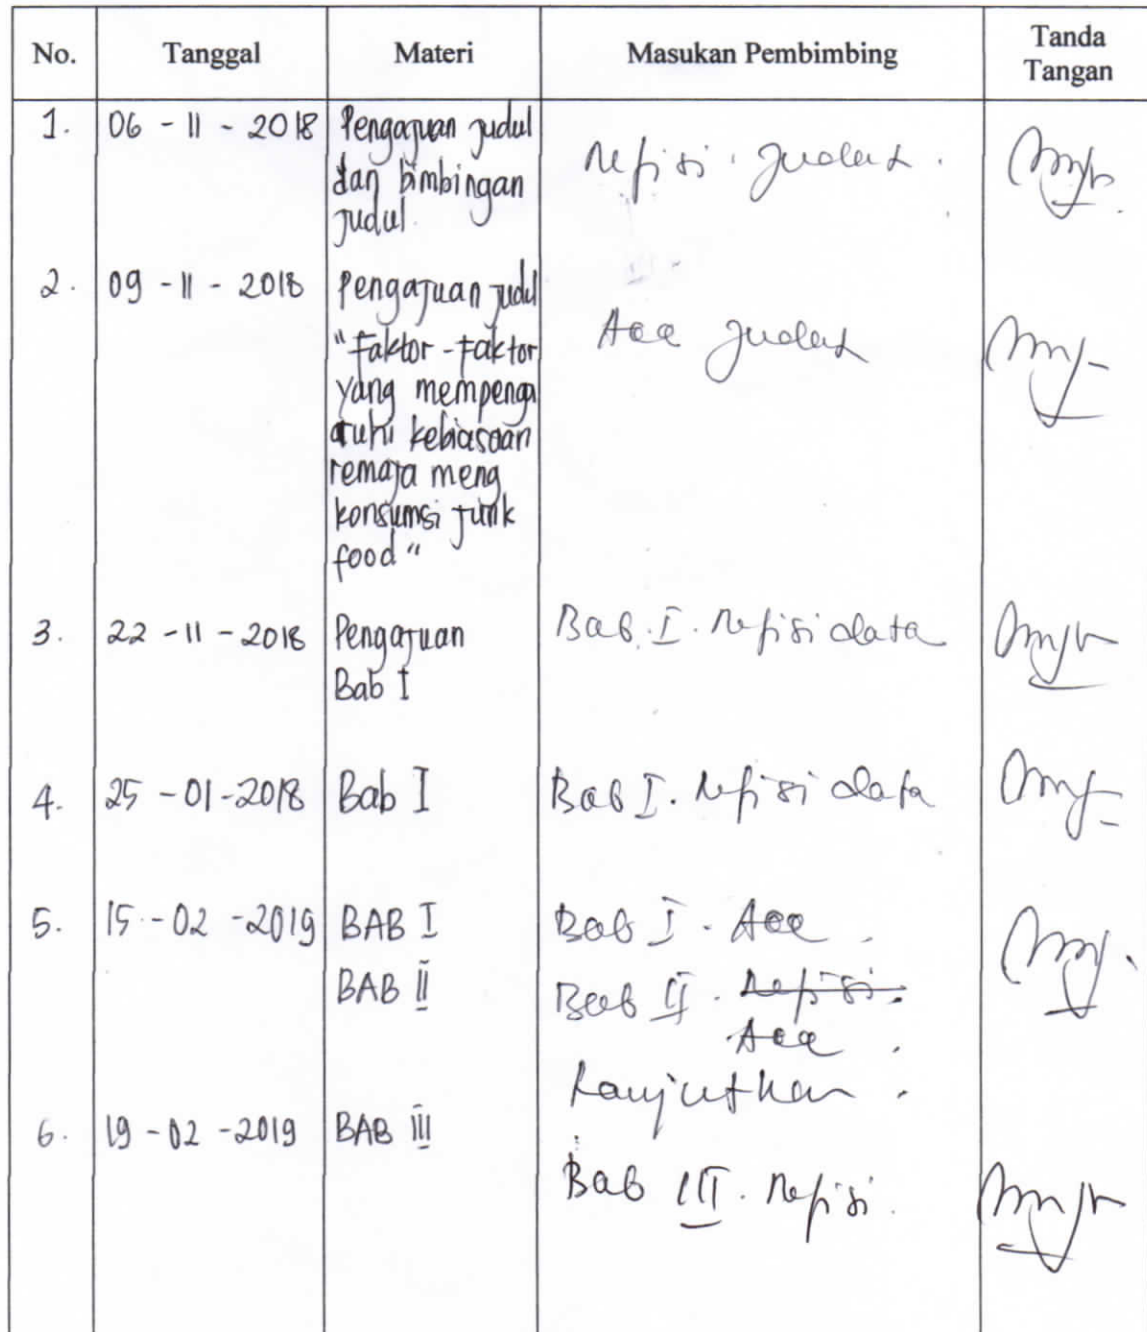 No. Tanggal Materi Masukan Pembimbing Tanda
Tangan
1. 06 - 11 - 2018 Pengajuan judul
dan bimbingan
judul.
Refisi judul.
2. 09 - 11 - 2018 Pengajuan judul
"Faktor-Faktor
yang mempenga
ruhi kebiasaan
remaja meng
konsumsi junk
food"
Acc judul
3. 22 - 11 - 2018 Pengajuan
Bab I
Bab. I. Refisi data
4. 25 - 01 - 2018 Bab I Bab I. Refisi data
5. 15 - 02 - 2019 BAB I Bab I. Acc.
BAB II Bab II. Refisi.
Acc.
Lanjutkan.
6. 19 - 02 - 2019 BAB III
Bab III. Refisi.